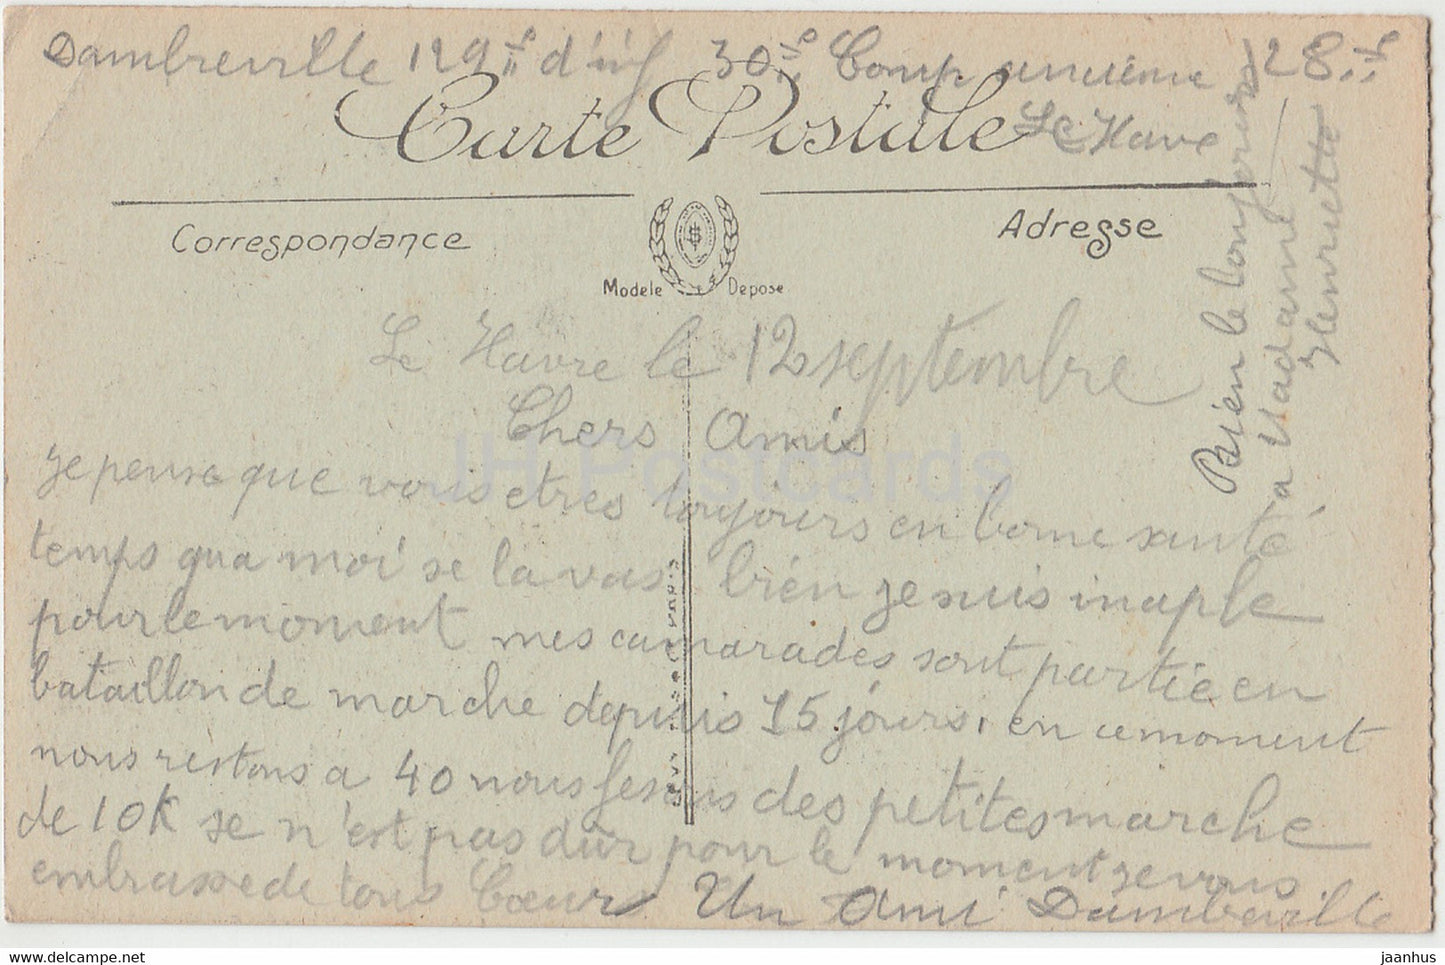 Dambreville 129e d'inf 30e Comp 28e
Le Havre
Carte Postale
Correspondance
Adresse
Modele Depose
Le Havre le 12 septembre
Chers Amis
je pense que vous etres toujours en bonne santé
temps qua moi se la vas bien je suis inaple
pour le moment mes camarades sont partie en
bataillon de marche depuis 15 jours, en ce moment
nous restons a 40 nous fesons des petites marche
de 10K se n'est pas dur pour le moment je vous
embrasse de tous Cœur Un Ami Dambreville
Bien le bonjour
a Madame
Henriette
JH Postcards
jaanhus